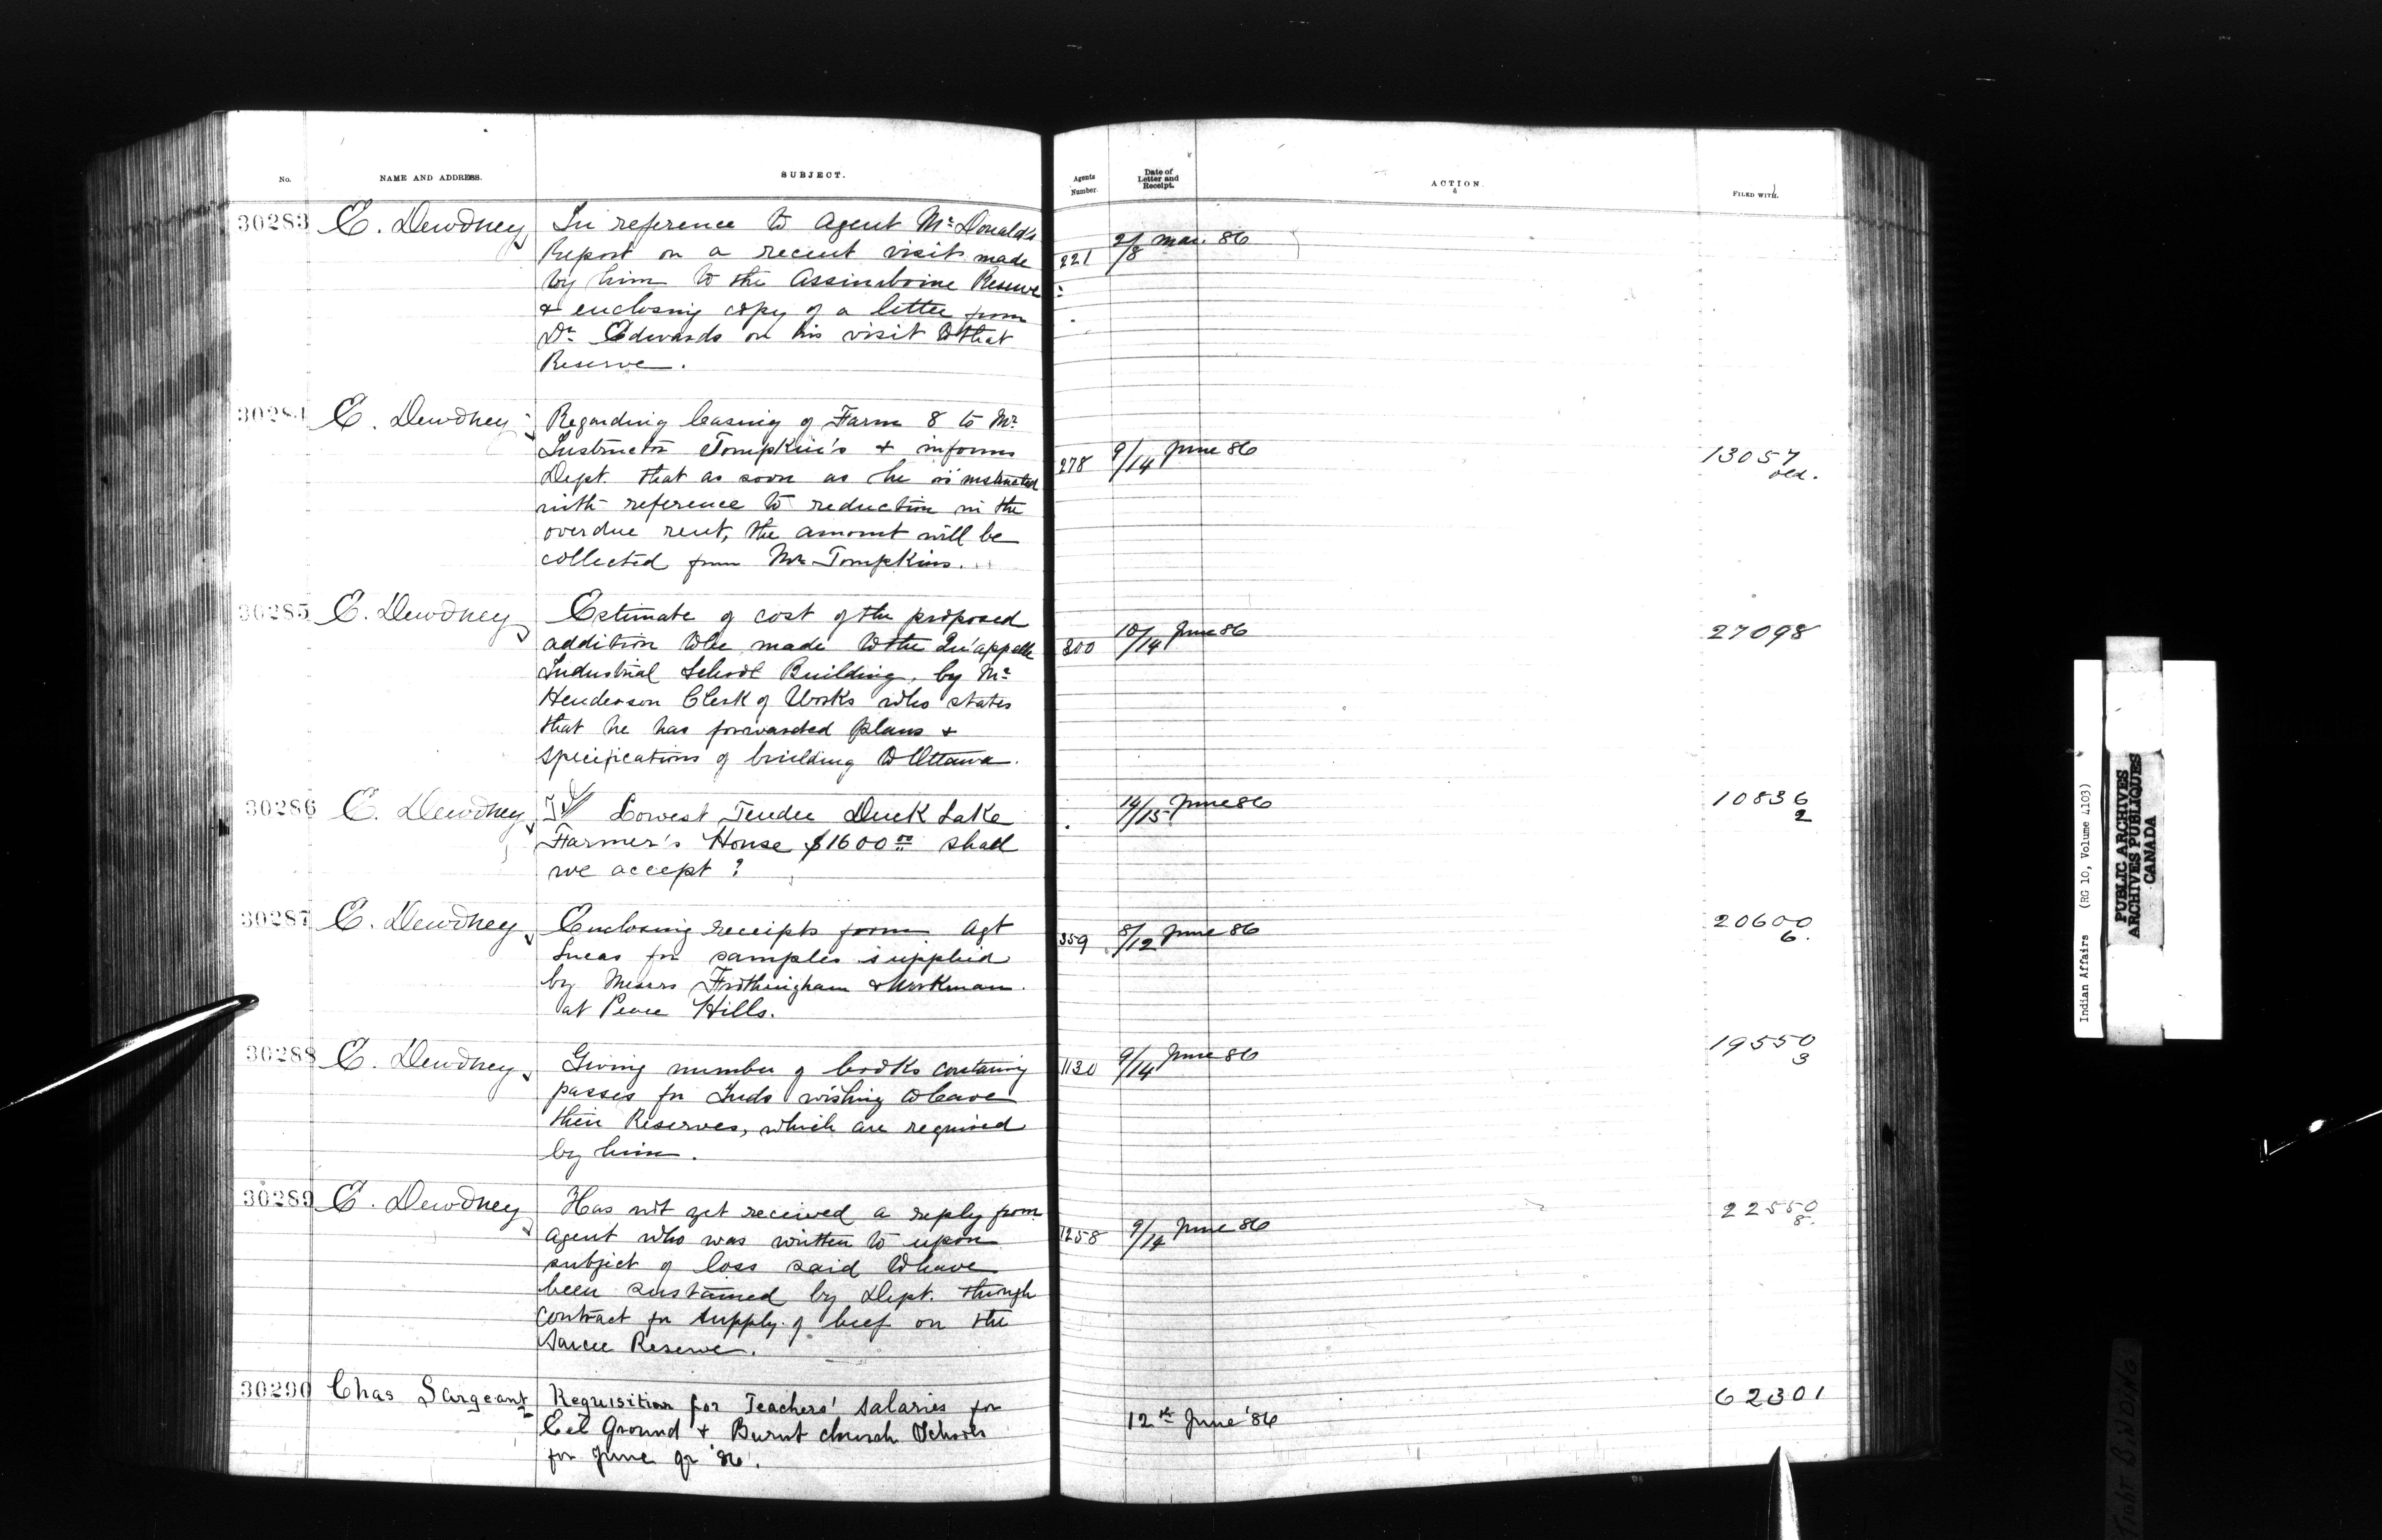 No. NAME AND ADDRESS. SUBJECT. Agents Number. Date of Letter and Receipt. ACTION. FILED WITH.
30283 E. Dewdney In reference to Agent Mc Donald's
Report on a recent visit made 221 2/8 Mar. 86
by him to the Assiniboine Reserve
& enclosing copy of a letter from
Dr Edwards on his visit to that
Reserve.
30284 E. Dewdney Regarding leasing of Farm 8 to Mr
Instructor Tompkin's & informs 278 9/14 June 86 13057
Dept. that as soon as he is instructed old.
with reference to reduction in the
overdue rent, the amount will be
collected from Mr Tompkins.
30285 E. Dewdney Estimate of cost of the proposed
addition to be made to the Qu'appelle 300 10/14 June 86 27098
Industrial School Building, by Mr
Henderson Clerk of Works who states
that he has forwarded plans &
specifications of building to Ottawa.
30286 E. Dewdney Lowest Tender Duck Lake 14/15 June 86 10836
Farmer's House $1600 00 shall 2
we accept?
30287 E. Dewdney Enclosing receipts from Agt 359 8/12 June 86 20600
Lucas for samples supplied 6.
by Messrs Frothingham & Workman
at Peace Hills.
30288 E. Dewdney Giving number of books containing 1130 9/14 June 86 19550
passes for Inds wishing to leave 3
their Reserves, which are required
by him.
30289 E. Dewdney Has not yet received a reply from 22550
Agent who was written to upon 1258 9/14 June 86 8.
subject of loss said to have
been sustained by Dept. through
contract for supply of beef on the
Sarcee Reserve.
30290 Chas Sargeant Requisition for Teachers' Salaries for 62301
Eel Ground & Burnt Church Schools 12th June '86
for June qr '86.
Indian Affairs (RG 10, Volume 4103)
PUBLIC ARCHIVES
ARCHIVES PUBLIQUES
CANADA
TIGHT BINDING